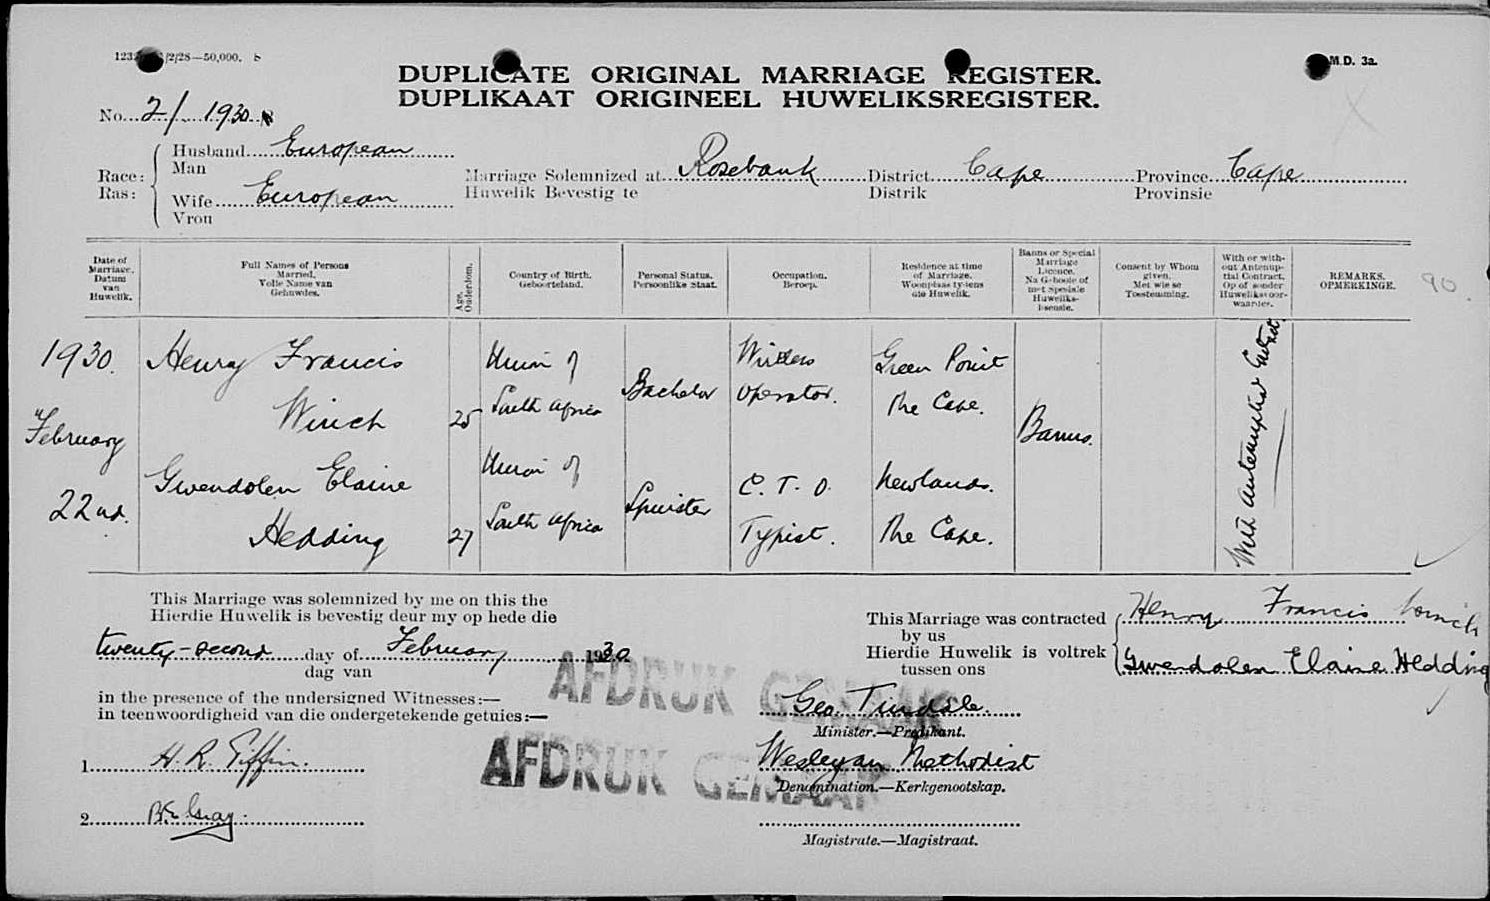 /2/28—50,000. S
M.D. 3a.
DUPLICATE ORIGINAL MARRIAGE REGISTER.
DUPLIKAAT ORIGINEEL HUWELIKSREGISTER.
No. 2/ 1930
Race: Husband European
Ras: Man
Wife European
Vrou
Marriage Solemnized at Rosebank District Cape Province Cape
Huwelik Bevestig te Distrik Provinsie
Date of Marriage. Datum van Huwelik.
Full Names of Persons Married. Volle Name van Gehuwdes.
Age. Ouderdom.
Country of Birth. Geboorteland.
Personal Status. Persoonlike Staat.
Occupation. Beroep.
Residence at time of Marriage. Woonplaas tydens die Huwelik.
Banns or Special Marriage Licence. Na Geboole of met Spesiale Huweliks-lisensie.
Consent by Whom given. Met wie se Toestemming.
With or with-out Antenup-tial Contract. Op of sonder Huweliksvoor-waardes.
REMARKS. OPMERKINGE.
90.
1930.
February
22nd.
Henry Francis
Winch
25
Union of
South Africa
Bachelor
Wireless
Operator.
Green Point
The Cape.
Banns.
With Antenuptial Contract.
Gwendolen Elaine
Hedding
27
Union of
South Africa
Spinster
C. T. O.
Typist.
Newlands.
The Cape.
This Marriage was solemnized by me on this the
Hierdie Huwelik is bevestig deur my op hede die
twenty-second day of February 1930
dag van
in the presence of the undersigned Witnesses:—
in teenwoordigheid van die ondergetekende getuies:—
1 H. R. Tiffin.
2 Gray.
This Marriage was contracted by us
Hierdie Huwelik is voltrek tussen ons
Henry Francis Winch
Gwendolen Elaine Hedding
AFDRUK GEMAAK
AFDRUK GEMAAK
Geo. Tindale.
Minister.—Predikant.
Wesleyan Methodist
Denomination.—Kerkgenootskap.
Magistrate.—Magistraat.